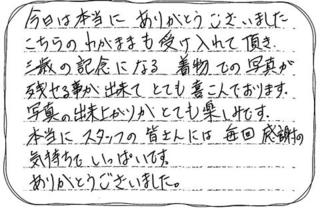 今日は本当に ありがとうございました
こちらの わがままも 受け入れて頂き、
三歳の記念になる 着物での写真が
残せる事が 出来て とても 喜こんでおります。
写真の出来上がりが とても楽しみです。
本当に スタッフの 皆さんには 毎回 感謝の
気持ちで いっぱいです。
ありがとうございました。